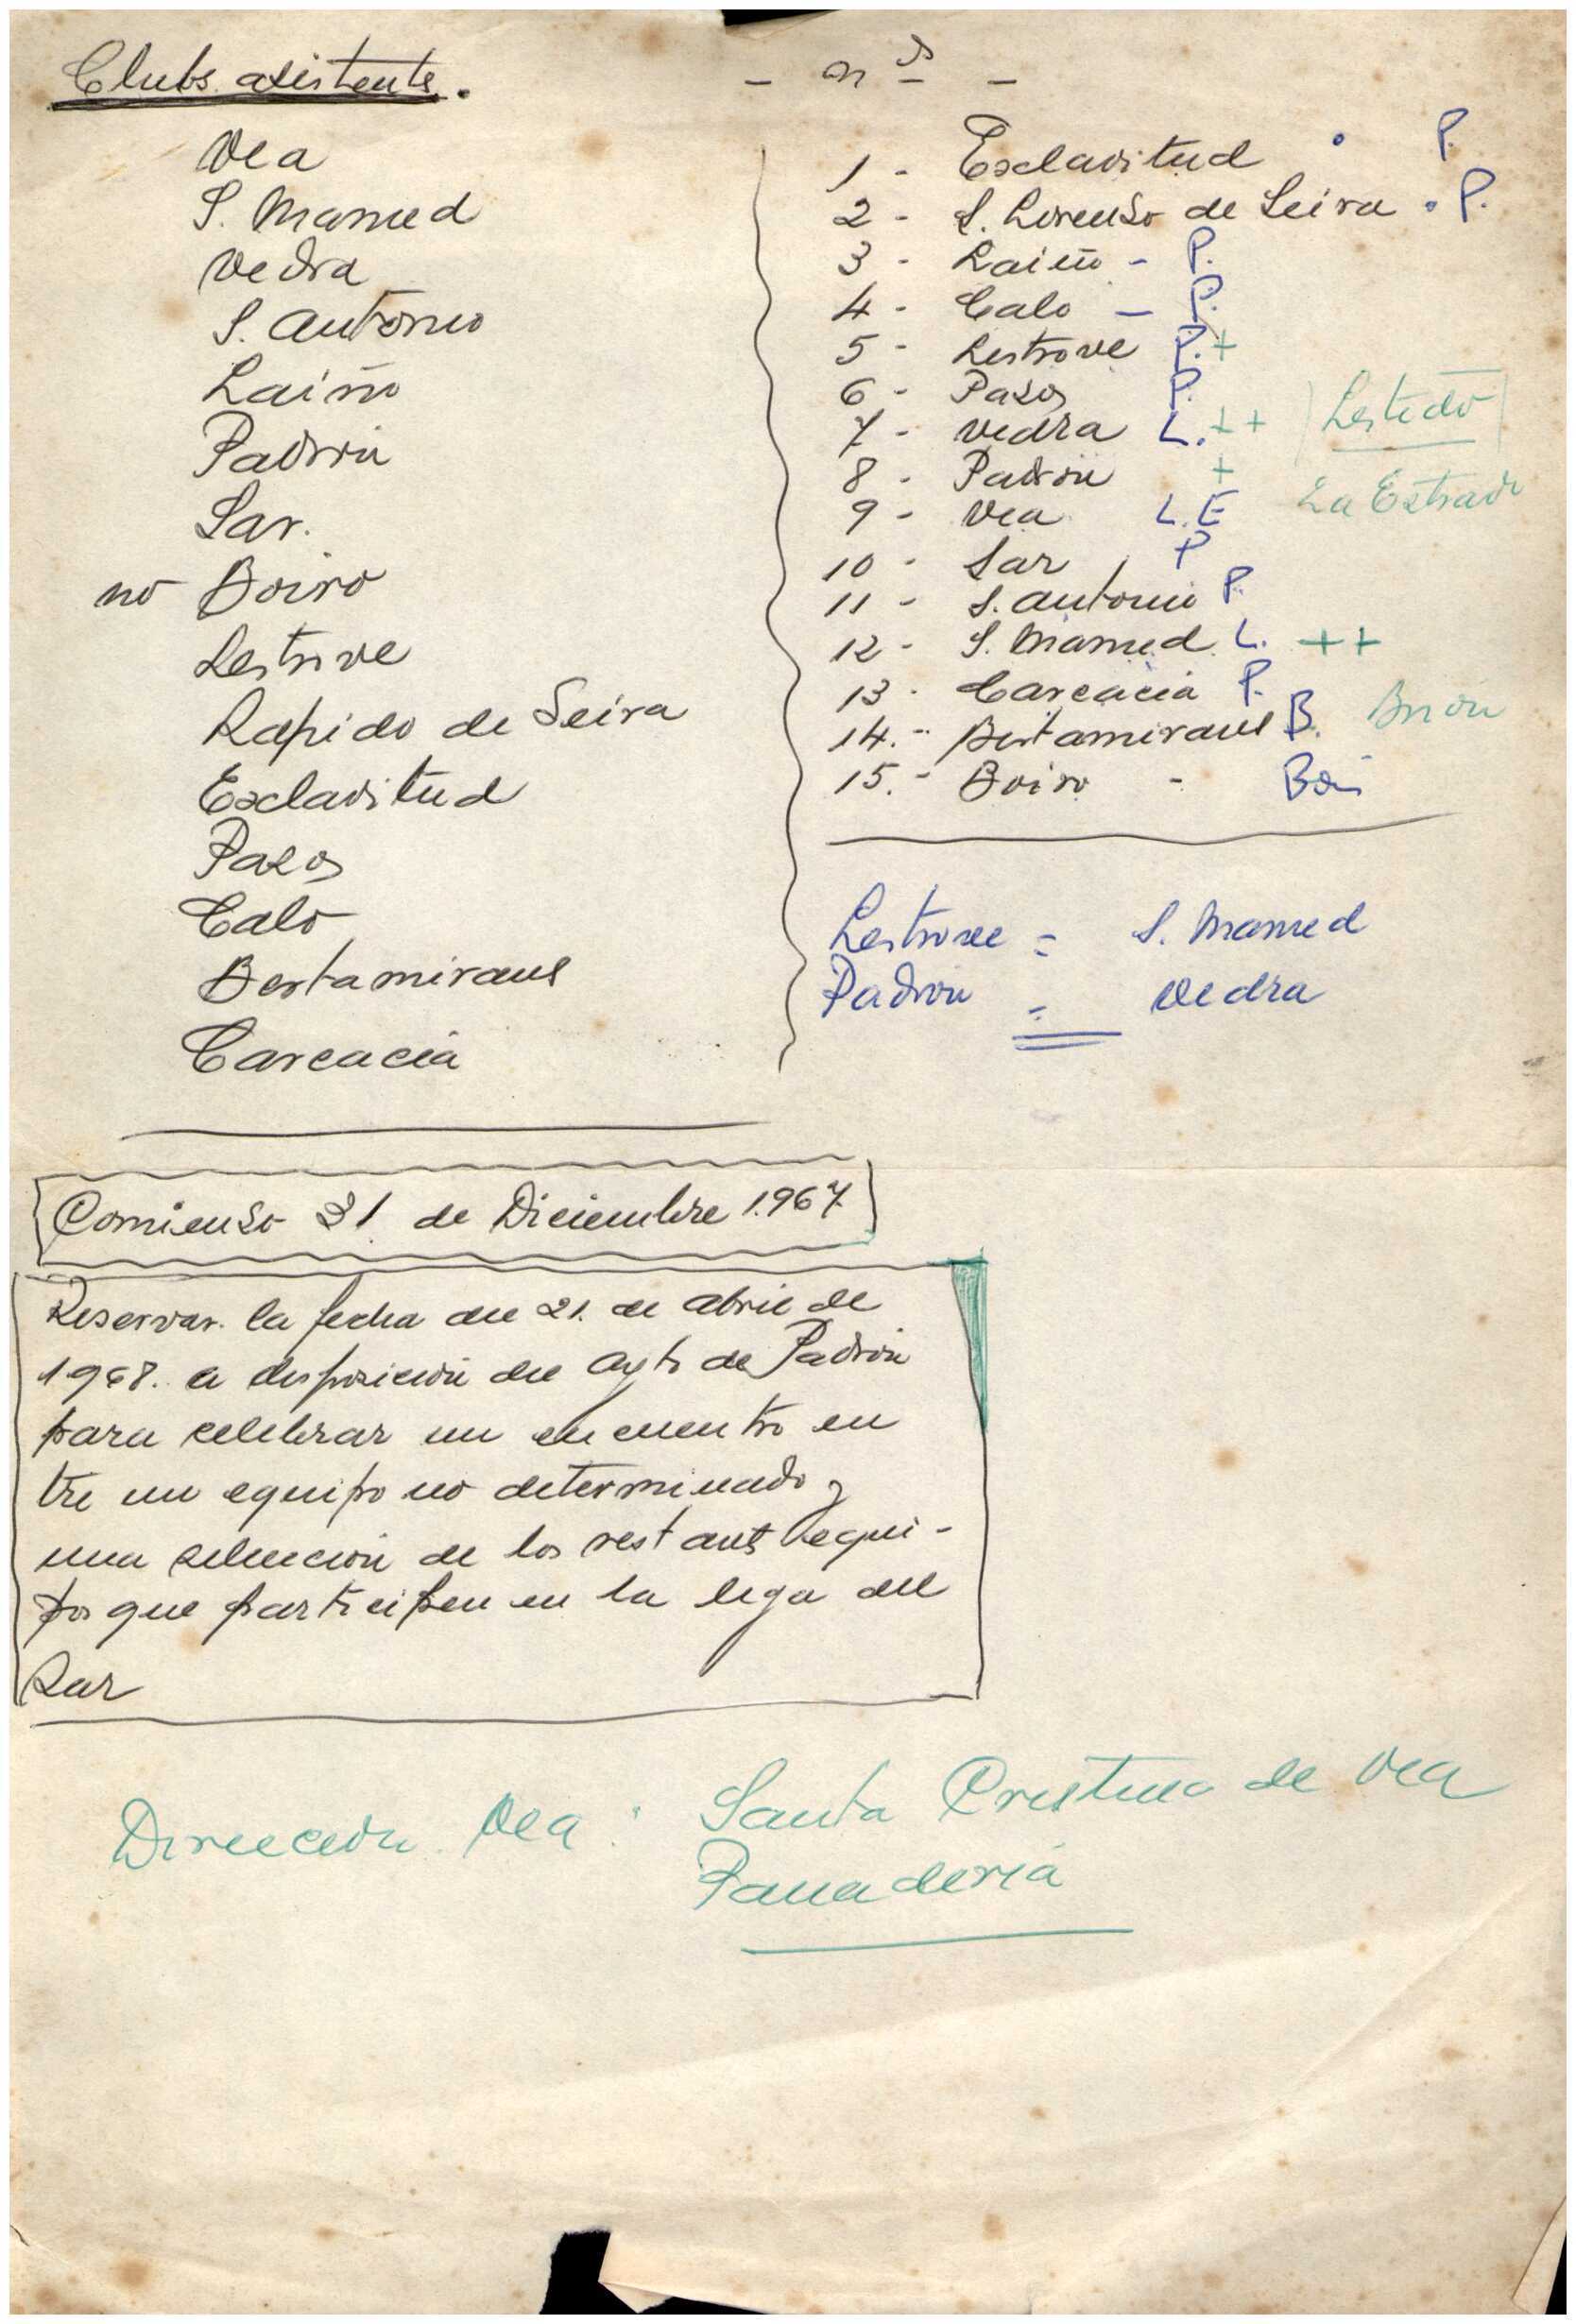 Clubs asistente.
Vea
S. Mamed
Vedra
S. Antonio
Laiño
Padrón
Sar.
no Boiro
Lestrove
Rapido de Seira
Esclavitud
Pazos
Calo
Bertamirans
Carcacia
- nºs -
1 - Esclavitud . P.
2 - S. Lorenso de Seira . P.
3 - Laiño - P.
4 - Calo - P.
5 - Lestrove P. +
6 - Pazos P.
7 - Vedra L. ++ Lestedo
8 - Padrón +
9 - Vea L.E La Estrada
10 - Sar P
11 - S. Antonio P.
12 - S. Mamed L. ++
13 - Carcacia P.
14. - Bertamirans B. Brión
15. - Boiro - Boi
Lestrove = S. Mamed
Padron = Vedra
Comienso 31. de Diciembre 1.967
Reservar. la fecha del 21. de abril de
1968. a disposición del Aytº de Padrón
para celebrar un encuentro en
tre un equipo no determinado y
una selección de los restants equi-
pos que participen en la liga del
Sar
Dirección Vea : Santa Cristina de Vea
Panadería